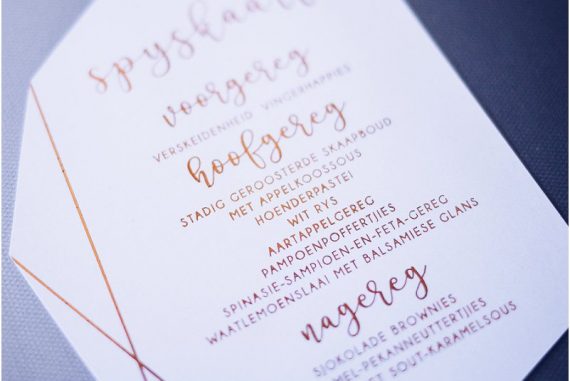 spyskaart
voorgereg
VERSKEIDENHEID VINGERHAPPIES
hoofgereg
STADIG GEROOSTERDE SKAAPBOUD
MET APPELKOOSSOUS
HOENDERPASTEI
WIT RYS
AARTAPPELGEREG
PAMPOENPOFFERTJIES
SPINASIE-SAMPIOEN-EN-FETA-GEREG
WAATLEMOENSLAAI MET BALSAMIESE GLANS
nagereg
SJOKOLADE BROWNIES
MEL-PEKANNEUTTERTJIES
MET SOUT-KARAMELSOUS